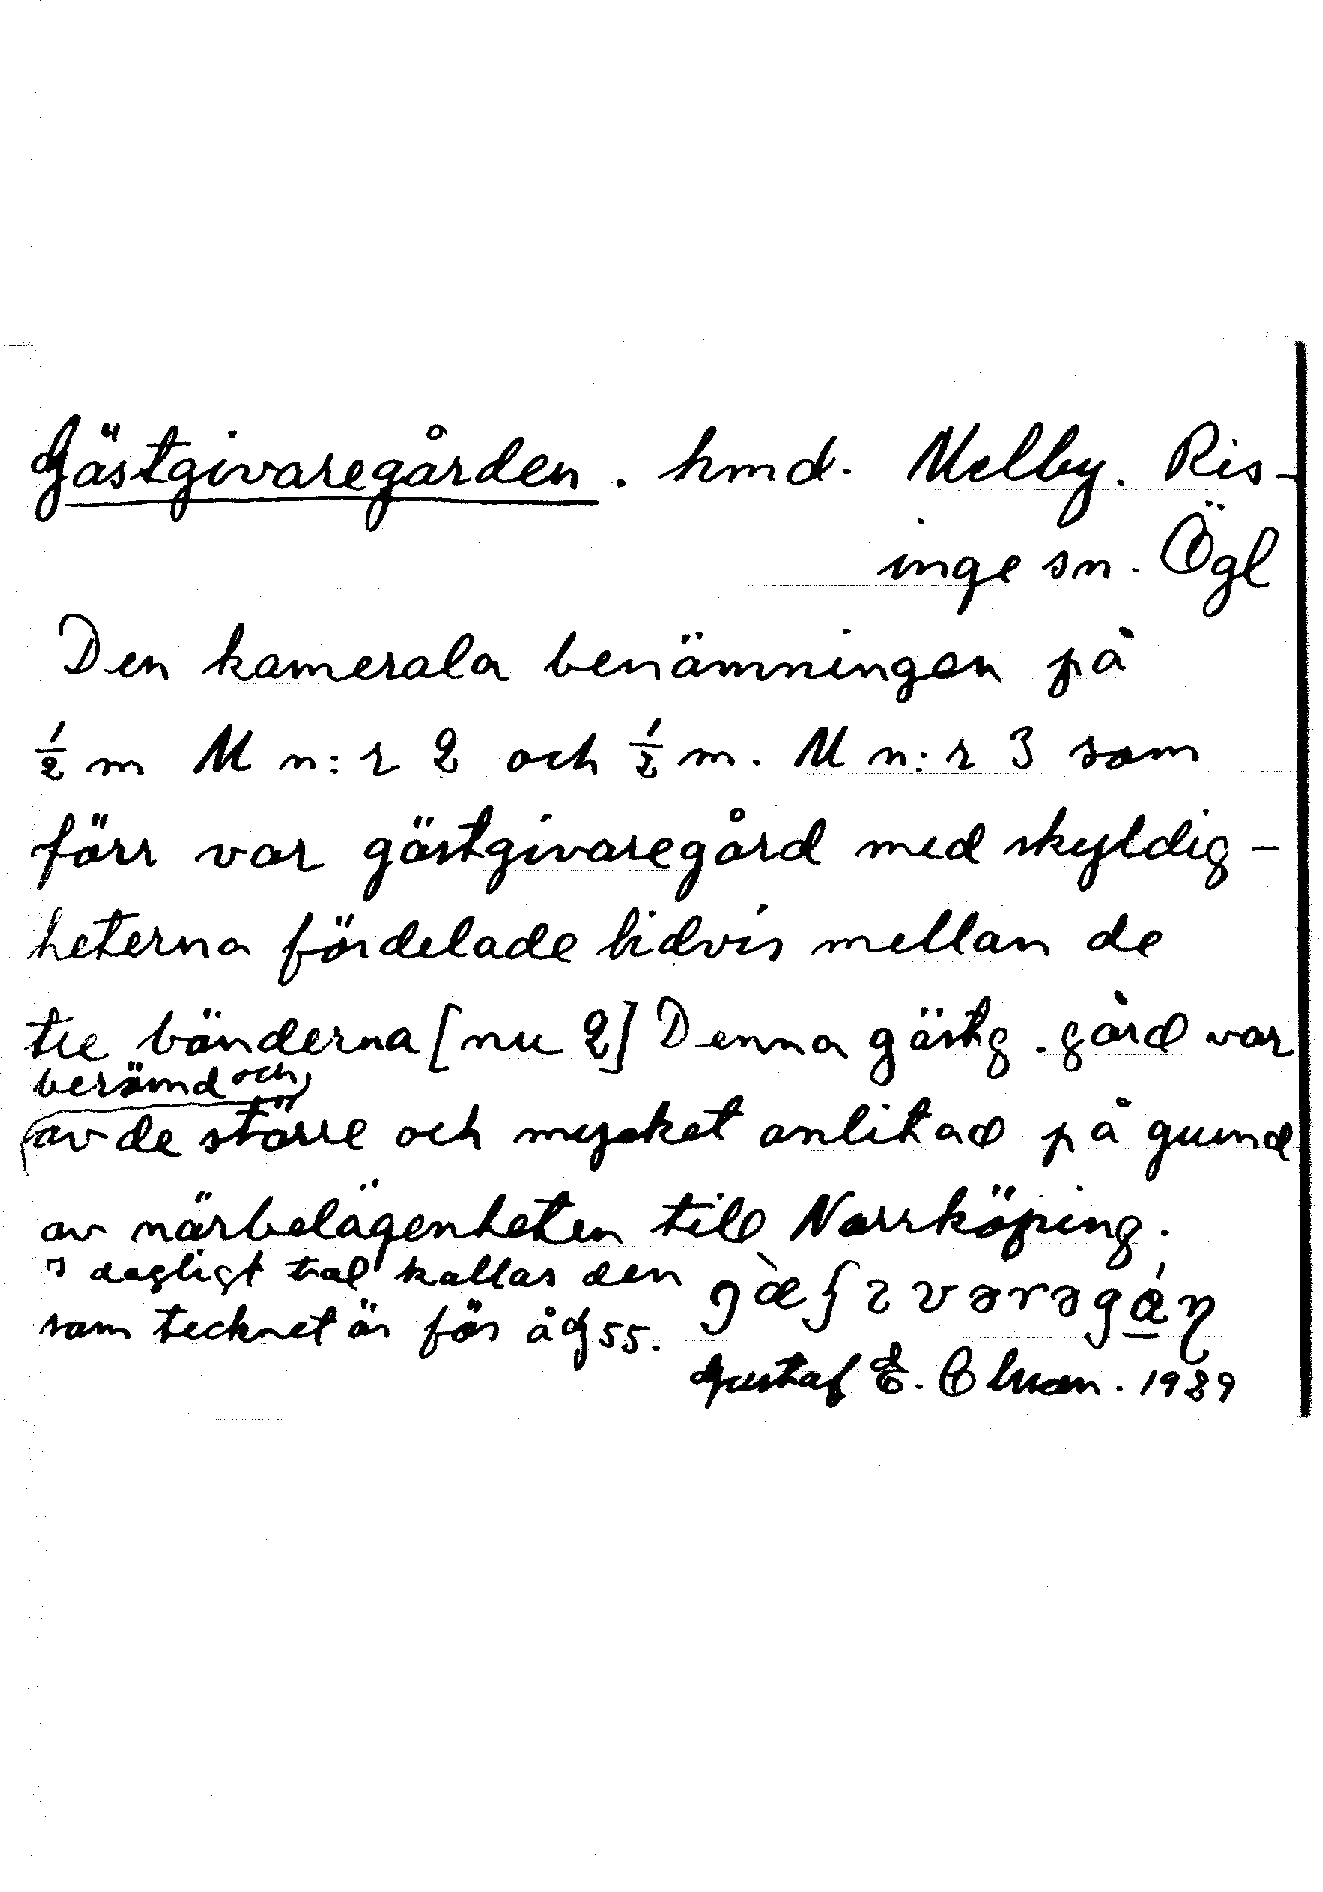 Gästgivaregården. hmd. Melby. Ris-
inge sn. Ögl
Den kamerala benämningen på
½ m M n:r 2 och ½ m. M n:r 3 som
förr var gästgivaregård med skyldig-
heterna fördelade tidvis mellan de
tre bönderna [nu 2] Denna gästg. gård var
berömd och
av de större och mycket anlitad på grund
av närbelägenheten till Norrköping.
I dagligt tal kallas den
som tecknet är för åG 55.
Gustaf E. Olsson. 1929